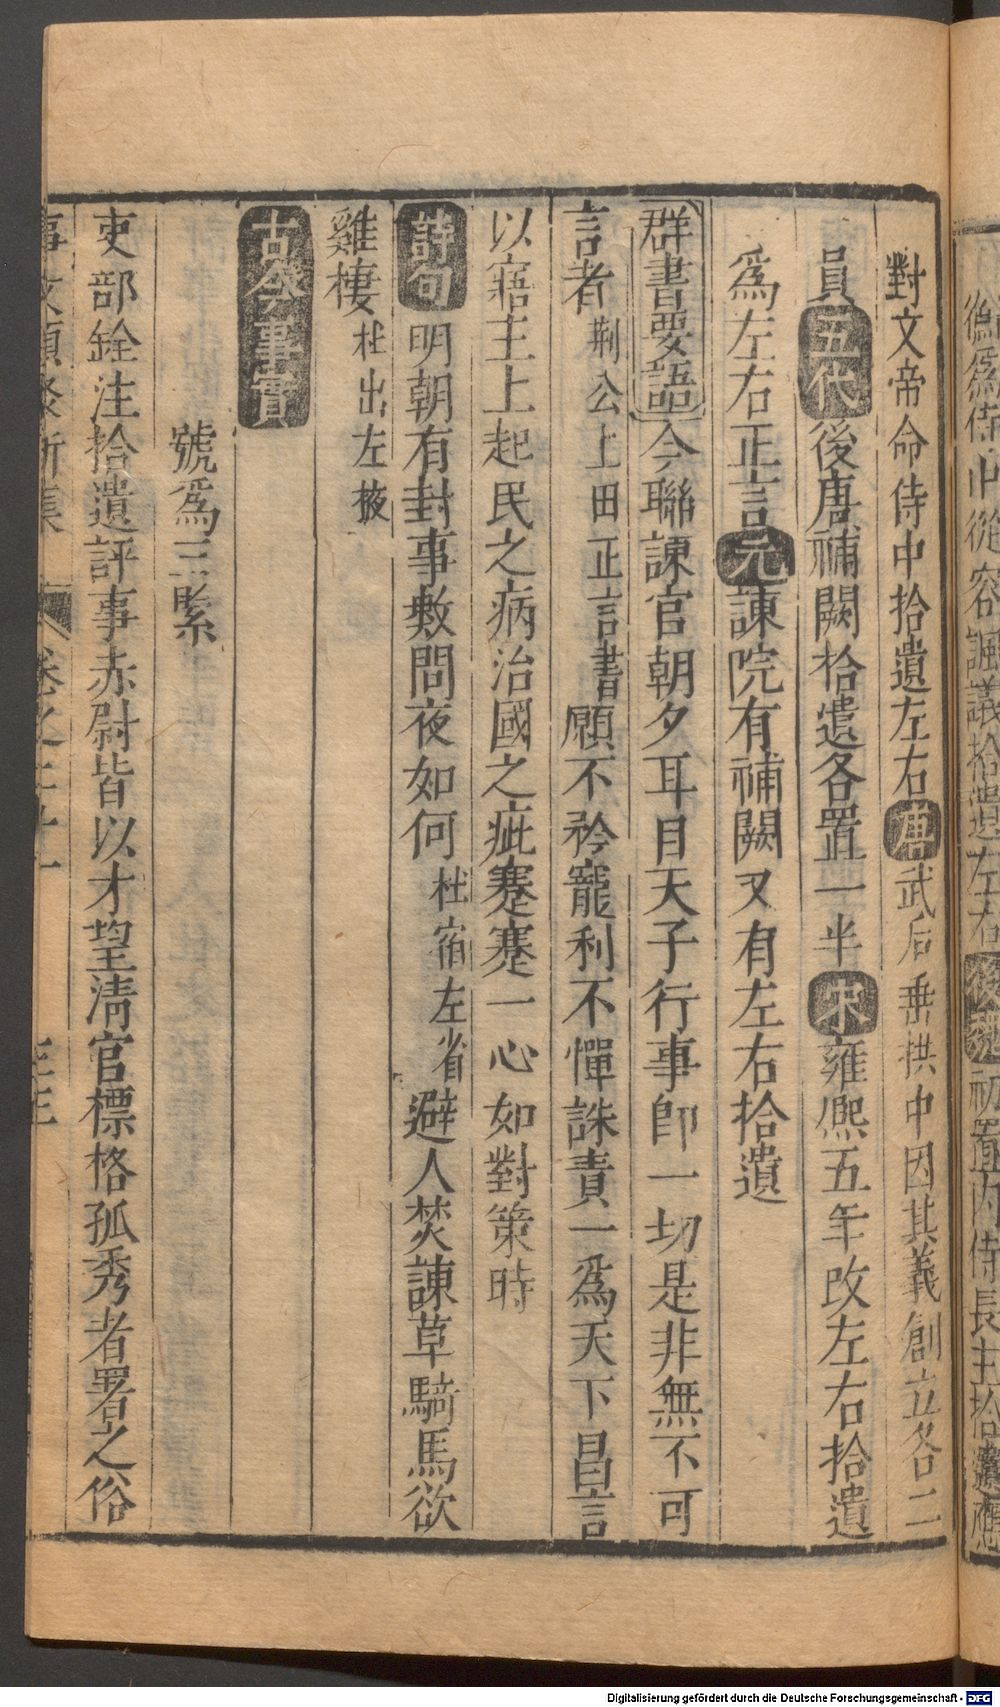 對文帝命侍中拾遺左右唐武后垂拱中因其義創立各二
員五代後唐補闕拾遺各置一半宋雍熈五年改左右拾遺
爲左右正言元諫院有補闕又有左右拾遺
群書要語今聯諫官朝夕耳目天子行事即一切是非無不可
言者荆公上田正言書願不矜寵利不憚誅責一爲天下昌言
以寤主上起民之病治國之疵蹇蹇一心如對策時
詩句明朝有封事數問夜如何杜宿左省避人焚諫草騎馬欲
雞棲杜出左掖
古今事實
號爲三䋣
吏部銓注拾遺評事赤尉皆以才望清官標格孤秀者署之俗
Digitalisierung gefördert durch die Deutsche Forschungsgemeinschaft - DFG